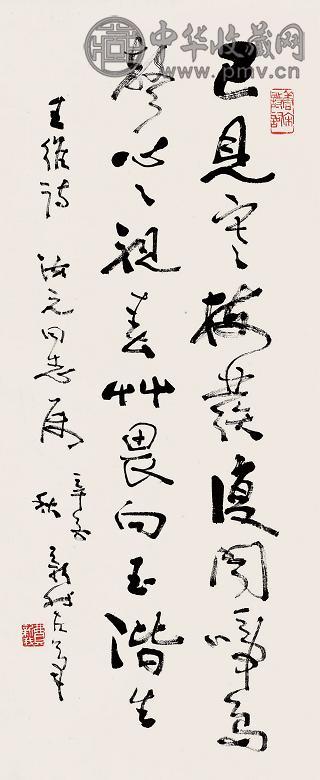 中华收藏网
www.pmv.cn
已見寒梅發復聞啼鳥
聲心々視春艸畏向玉階生
王維詩 汝元同志屬
辛酉秋 新我左筆